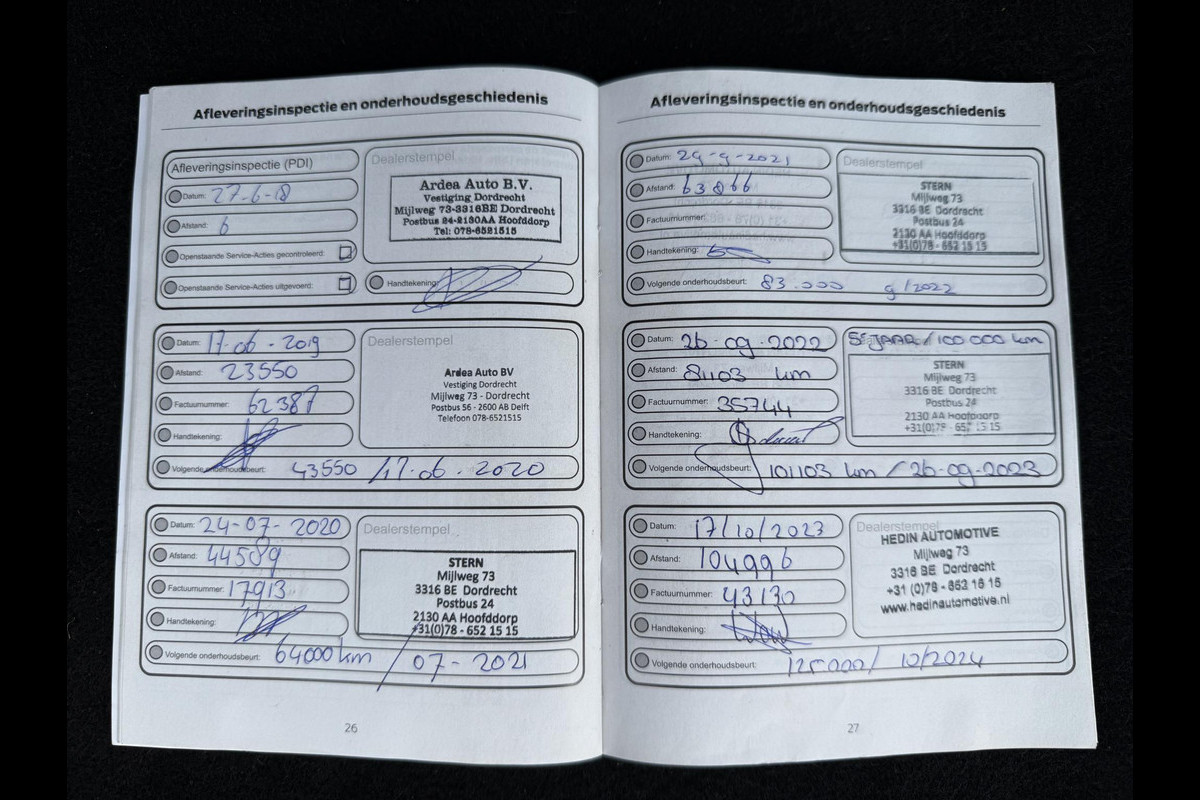 Afleveringsinspectie en onderhoudsgeschiedenis
Afleveringsinspectie (PDI)
Datum: 27-6-18
Afstand: 6
Openstaande Service-Acties gecontroleerd:
Openstaande Service-Acties uitgevoerd:
Dealerstempel
Ardea Auto B.V.
Vestiging Dordrecht
Mijlweg 73-3316BE Dordrecht
Postbus 24-2130AA Hoofddorp
Tel: 078-6521515
Handtekening:
Datum: 17-06-2019
Afstand: 23550
Factuurnummer: 62387
Handtekening:
Volgende onderhoudsbeurt: 43550 / 17-06-2020
Dealerstempel
Ardea Auto BV
Vestiging Dordrecht
Mijlweg 73 - Dordrecht
Postbus 56 - 2600 AB Delft
Telefoon 078-6521515
Datum: 24-07-2020
Afstand: 44589
Factuurnummer: 17913
Handtekening:
Volgende onderhoudsbeurt: 64000 km / 07-2021
Dealerstempel
STERN
Mijlweg 73
3316 BE Dordrecht
Postbus 24
2130 AA Hoofddorp
+31(0)78 - 652 15 15
26
Afleveringsinspectie en onderhoudsgeschiedenis
Datum: 29-9-2021
Afstand: 63866
Factuurnummer:
Handtekening:
Volgende onderhoudsbeurt: 83.000 9/2022
Dealerstempel
STERN
Mijlweg 73
3316 BE Dordrecht
Postbus 24
2130 AA Hoofddorp
+31(0)78 - 652 15 15
Datum: 26-09-2022
Afstand: 81103 km
Factuurnummer: 35744
Handtekening:
Volgende onderhoudsbeurt: 101103 km / 26-09-2023
JAAR / 100 000 km
STERN
Mijlweg 73
3316 BE Dordrecht
Postbus 24
2130 AA Hoofddorp
+31(0)78 - 652 15 15
Datum: 17/10/2023
Afstand: 104996
Factuurnummer: 43130
Handtekening:
Volgende onderhoudsbeurt: 125000/ 10/2024
Dealerstempel
HEDIN AUTOMOTIVE
Mijlweg 73
3316 BE Dordrecht
+31 (0)78 - 652 15 15
www.hedinautomotive.nl
27